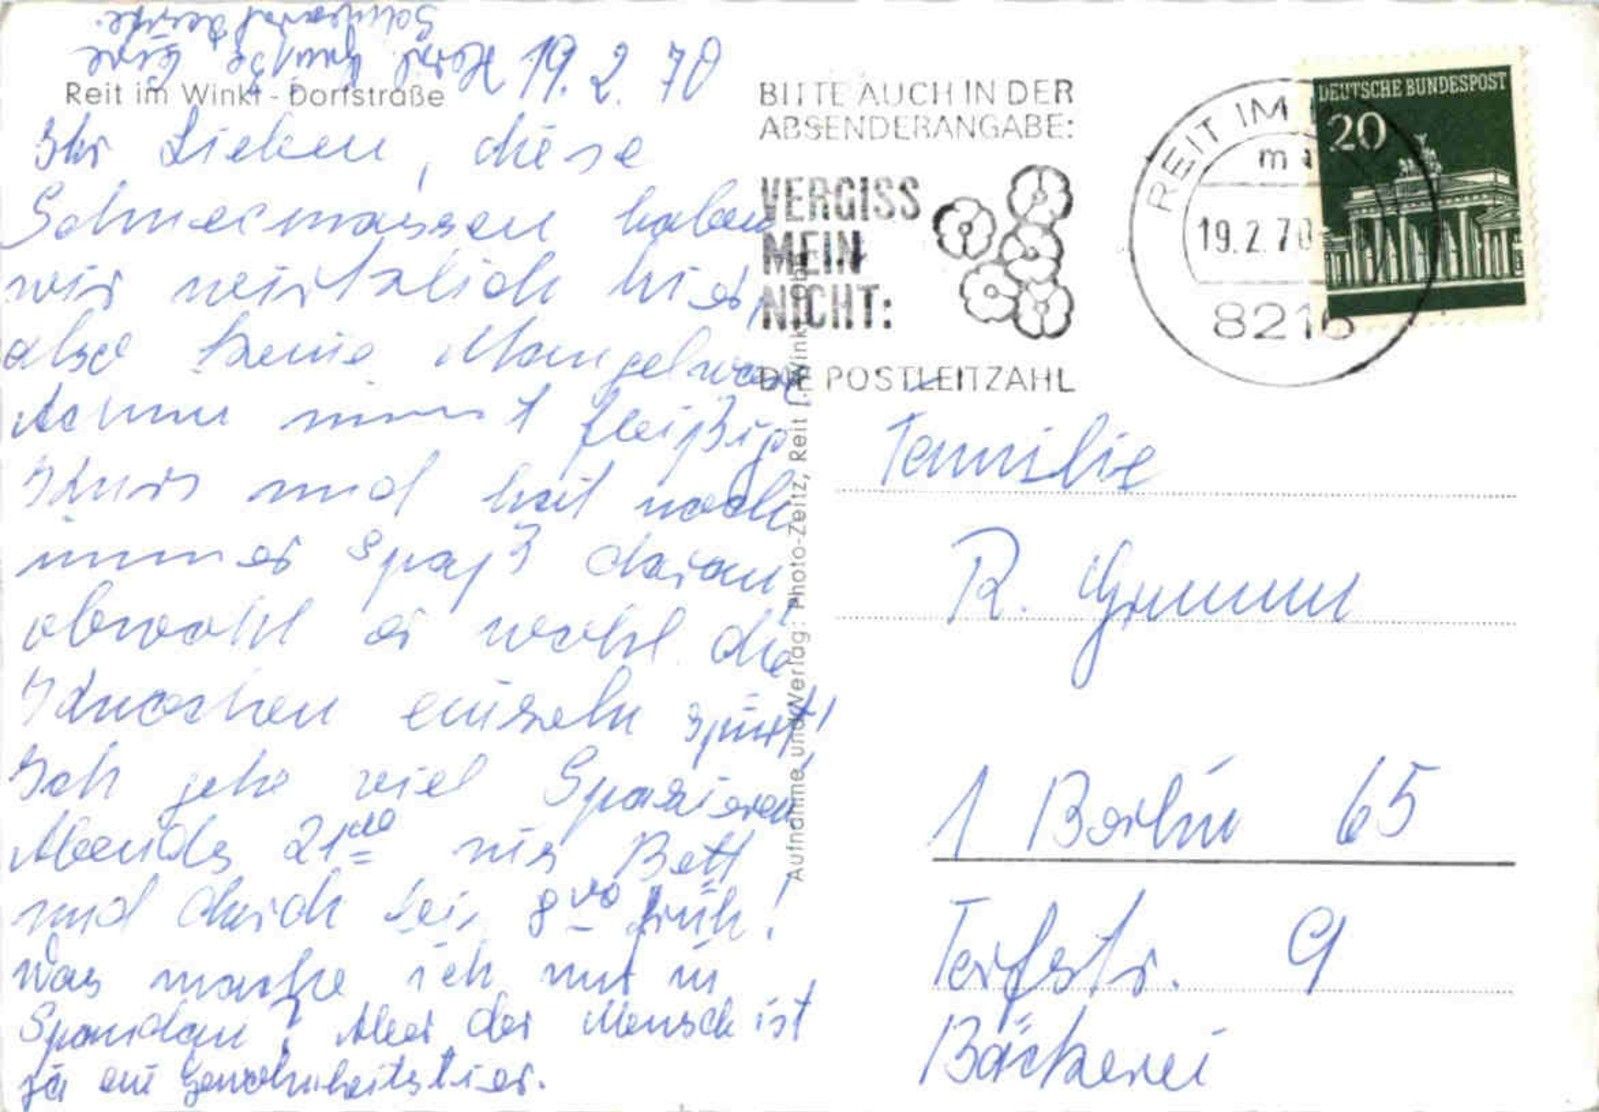 19.2.70
Reit im Winkl - Dorfstraße
Ihr Lieben, diese
Schneemassen haben
wir wirklich hier,
also keine Mangelware
nimmt fleißig
Kurs und hat noch
immer Spaß daran,
obwohl er wohl die
Knochen einzeln spürt!
Ich gehe viel Spazieren
Abends 21 00 ins Bett
und durch bis 8 00 früh!
Was mache ich nur in
Spandau? Aber der Mensch ist
ja ein Gewohnheitstier.
Horst
Eure
BITTE AUCH IN DER
ABSENDERANGABE:
VERGISS
MEIN
NICHT:
DIE POSTLEITZAHL
REIT IM
19.2.70
8216
DEUTSCHE BUNDESPOST
20
Aufnahme und Verlag: Photo-Zeitz, Reit i. Winkl
Familie
R. Grumm
1 Berlin 65
Torfstr. 9
Bäckerei